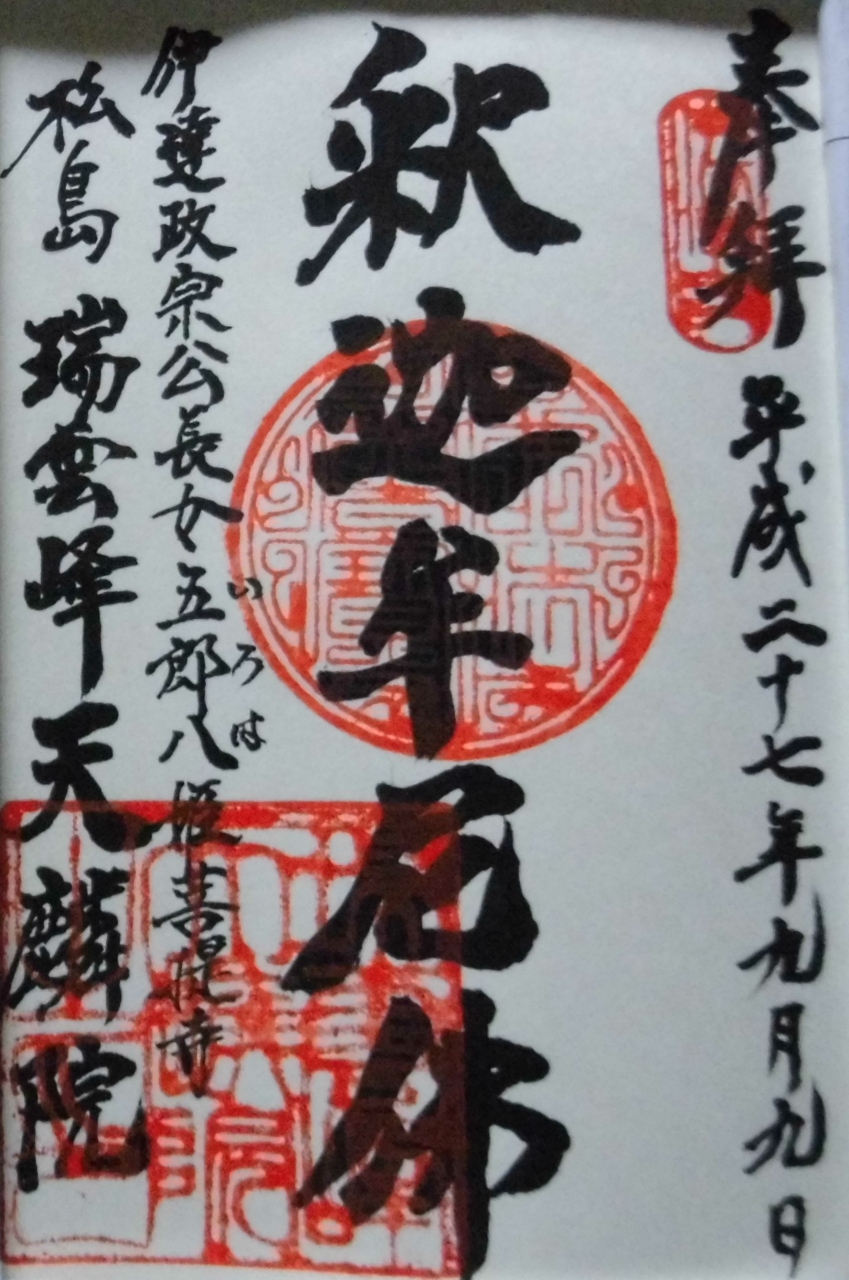 奉拝
平成二十七年九月九日
釈迦牟尼佛
伊達政宗公長女五郎八姫菩提寺
いろは
松島 瑞雲峰天麟院